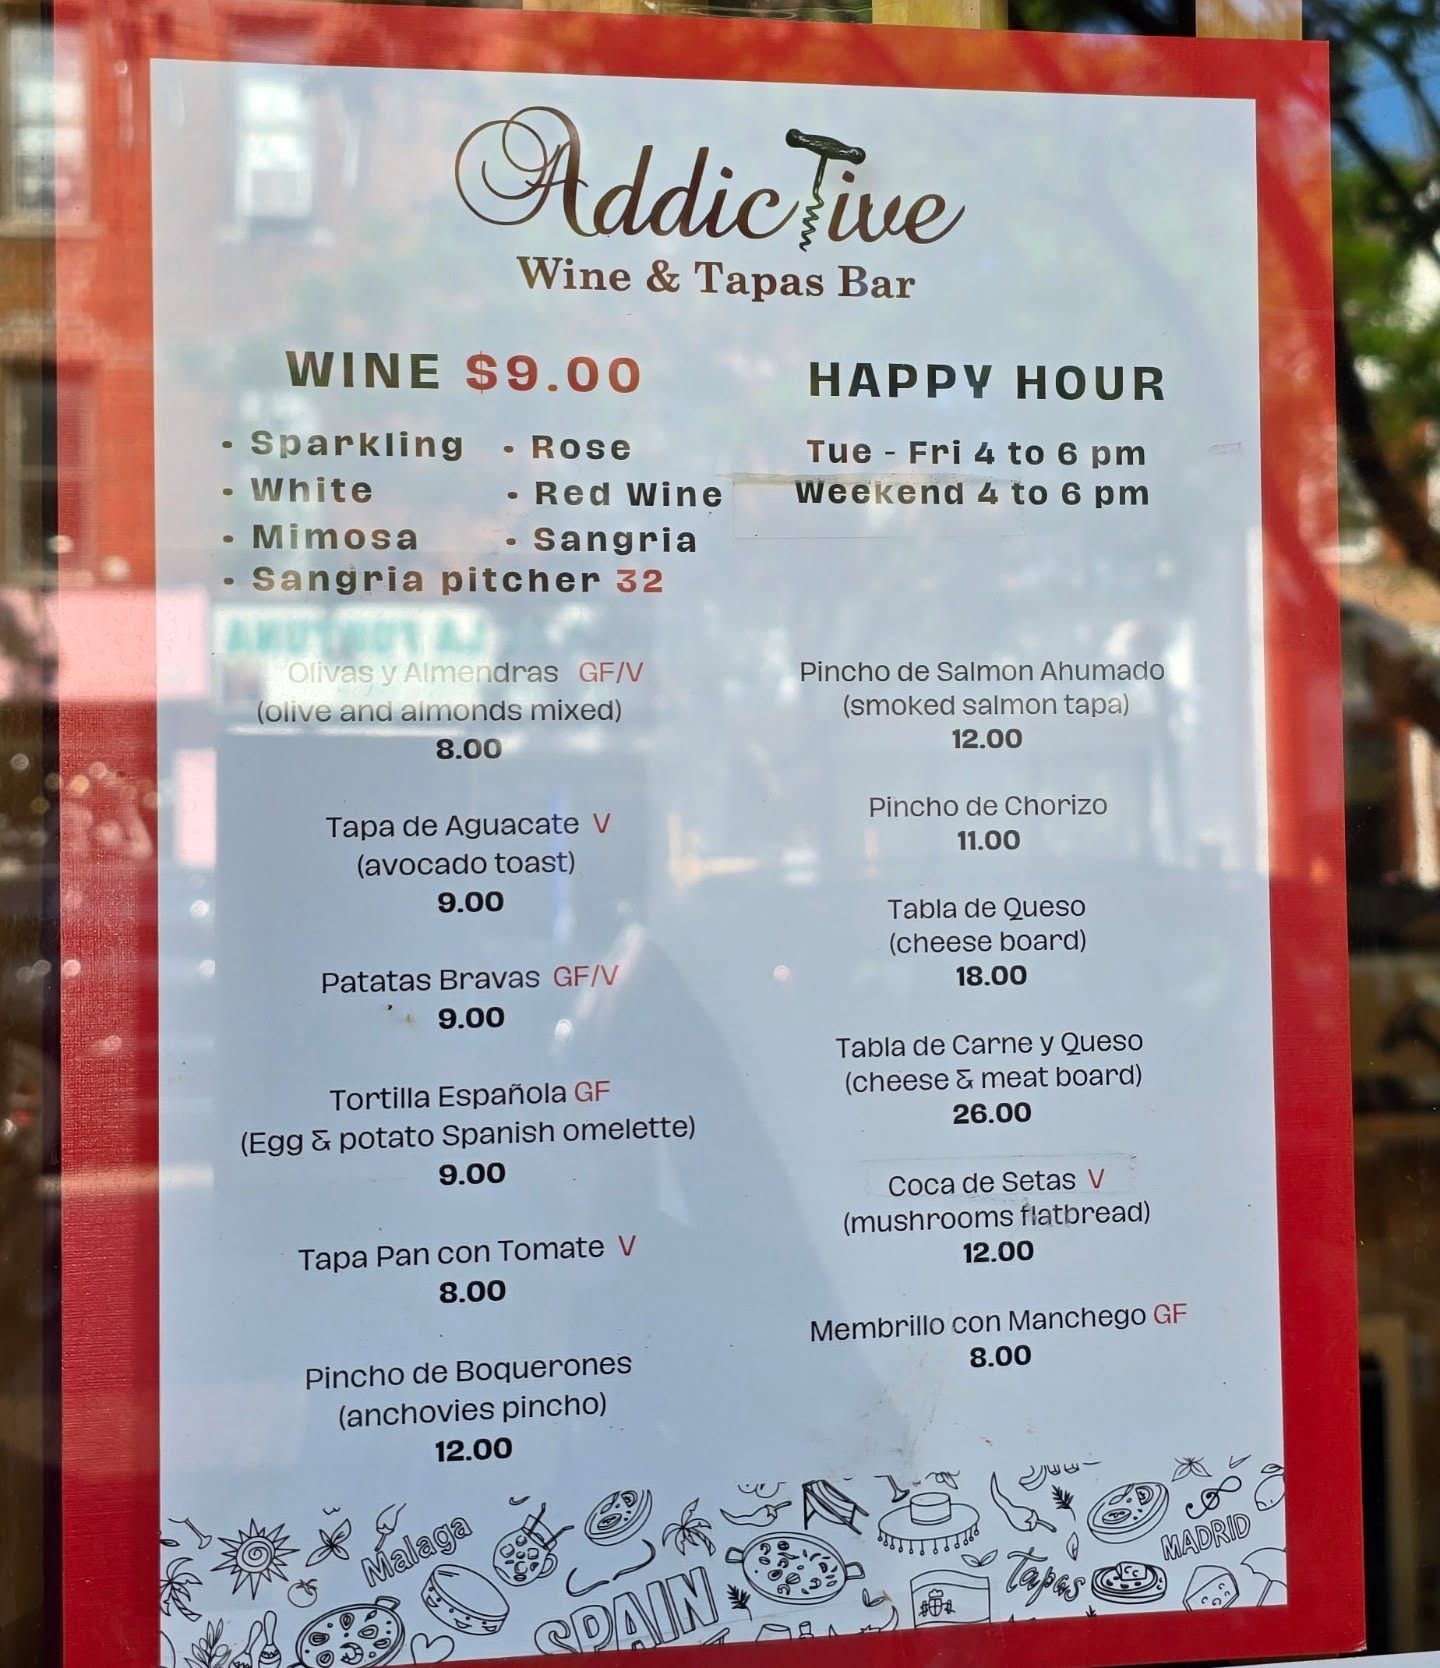 Addictive
Wine & Tapas Bar
WINE $9.00
• Sparkling • Rose
• White • Red Wine
• Mimosa • Sangria
• Sangria pitcher 32
HAPPY HOUR
Tue - Fri 4 to 6 pm
Weekend 4 to 6 pm
Olivas y Almendras GF/V
(olive and almonds mixed)
8.00
Tapa de Aguacate V
(avocado toast)
9.00
Patatas Bravas GF/V
9.00
Tortilla Española GF
(Egg & potato Spanish omelette)
9.00
Tapa Pan con Tomate V
8.00
Pincho de Boquerones
(anchovies pincho)
12.00
Pincho de Salmon Ahumado
(smoked salmon tapa)
12.00
Pincho de Chorizo
11.00
Tabla de Queso
(cheese board)
18.00
Tabla de Carne y Queso
(cheese & meat board)
26.00
Coca de Setas V
(mushrooms flatbread)
12.00
Membrillo con Manchego GF
8.00
Malaga
SPAIN
Tapas
MADRID